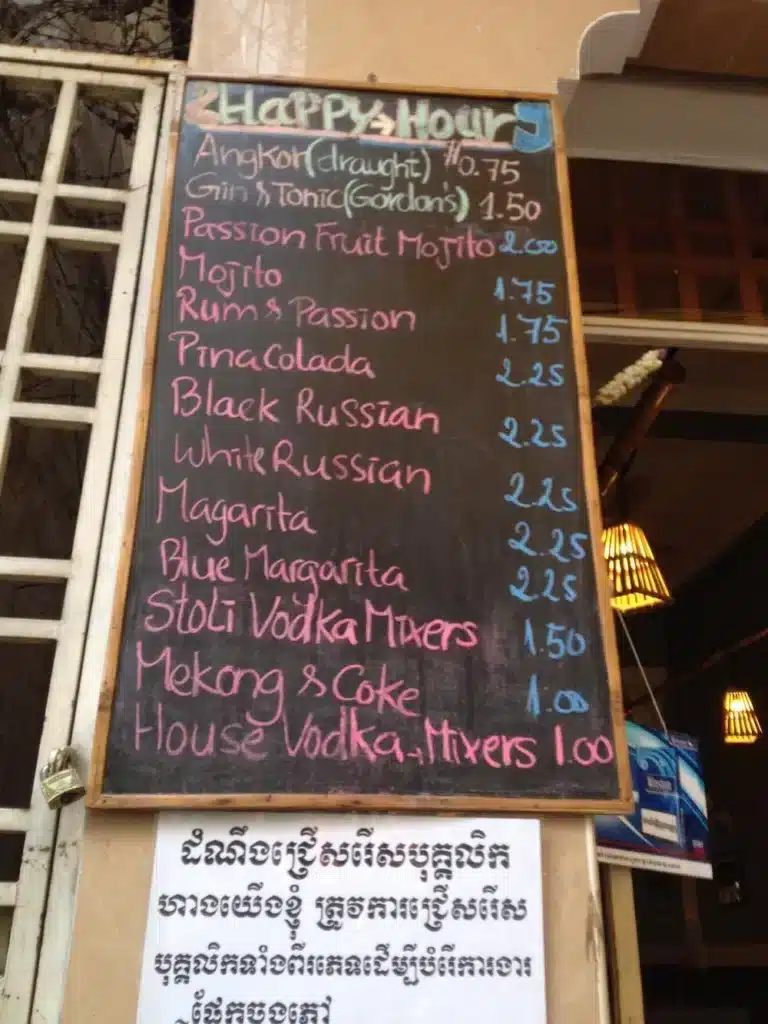 Happy Hour
Angkor (draught) $0.75
Gin & Tonic (Gordon's) 1.50
Passion Fruit Mojito 2.00
Mojito 1.75
Rum & Passion 1.75
Pina Colada 2.25
Black Russian 2.25
White Russian 2.25
Magarita 2.25
Blue Margarita 2.25
Stoli Vodka Mixers 1.50
Mekong & Coke 1.00
House Vodka Mixers 1.00
ដំណឹងជ្រើសរើសបុគ្គលិក
ហាងយើងខ្ញុំ ត្រូវការជ្រើសរើស
បុគ្គលិកទាំងពីរភេទដើម្បីបំរើការងារ
ផ្នែកចុងភៅ